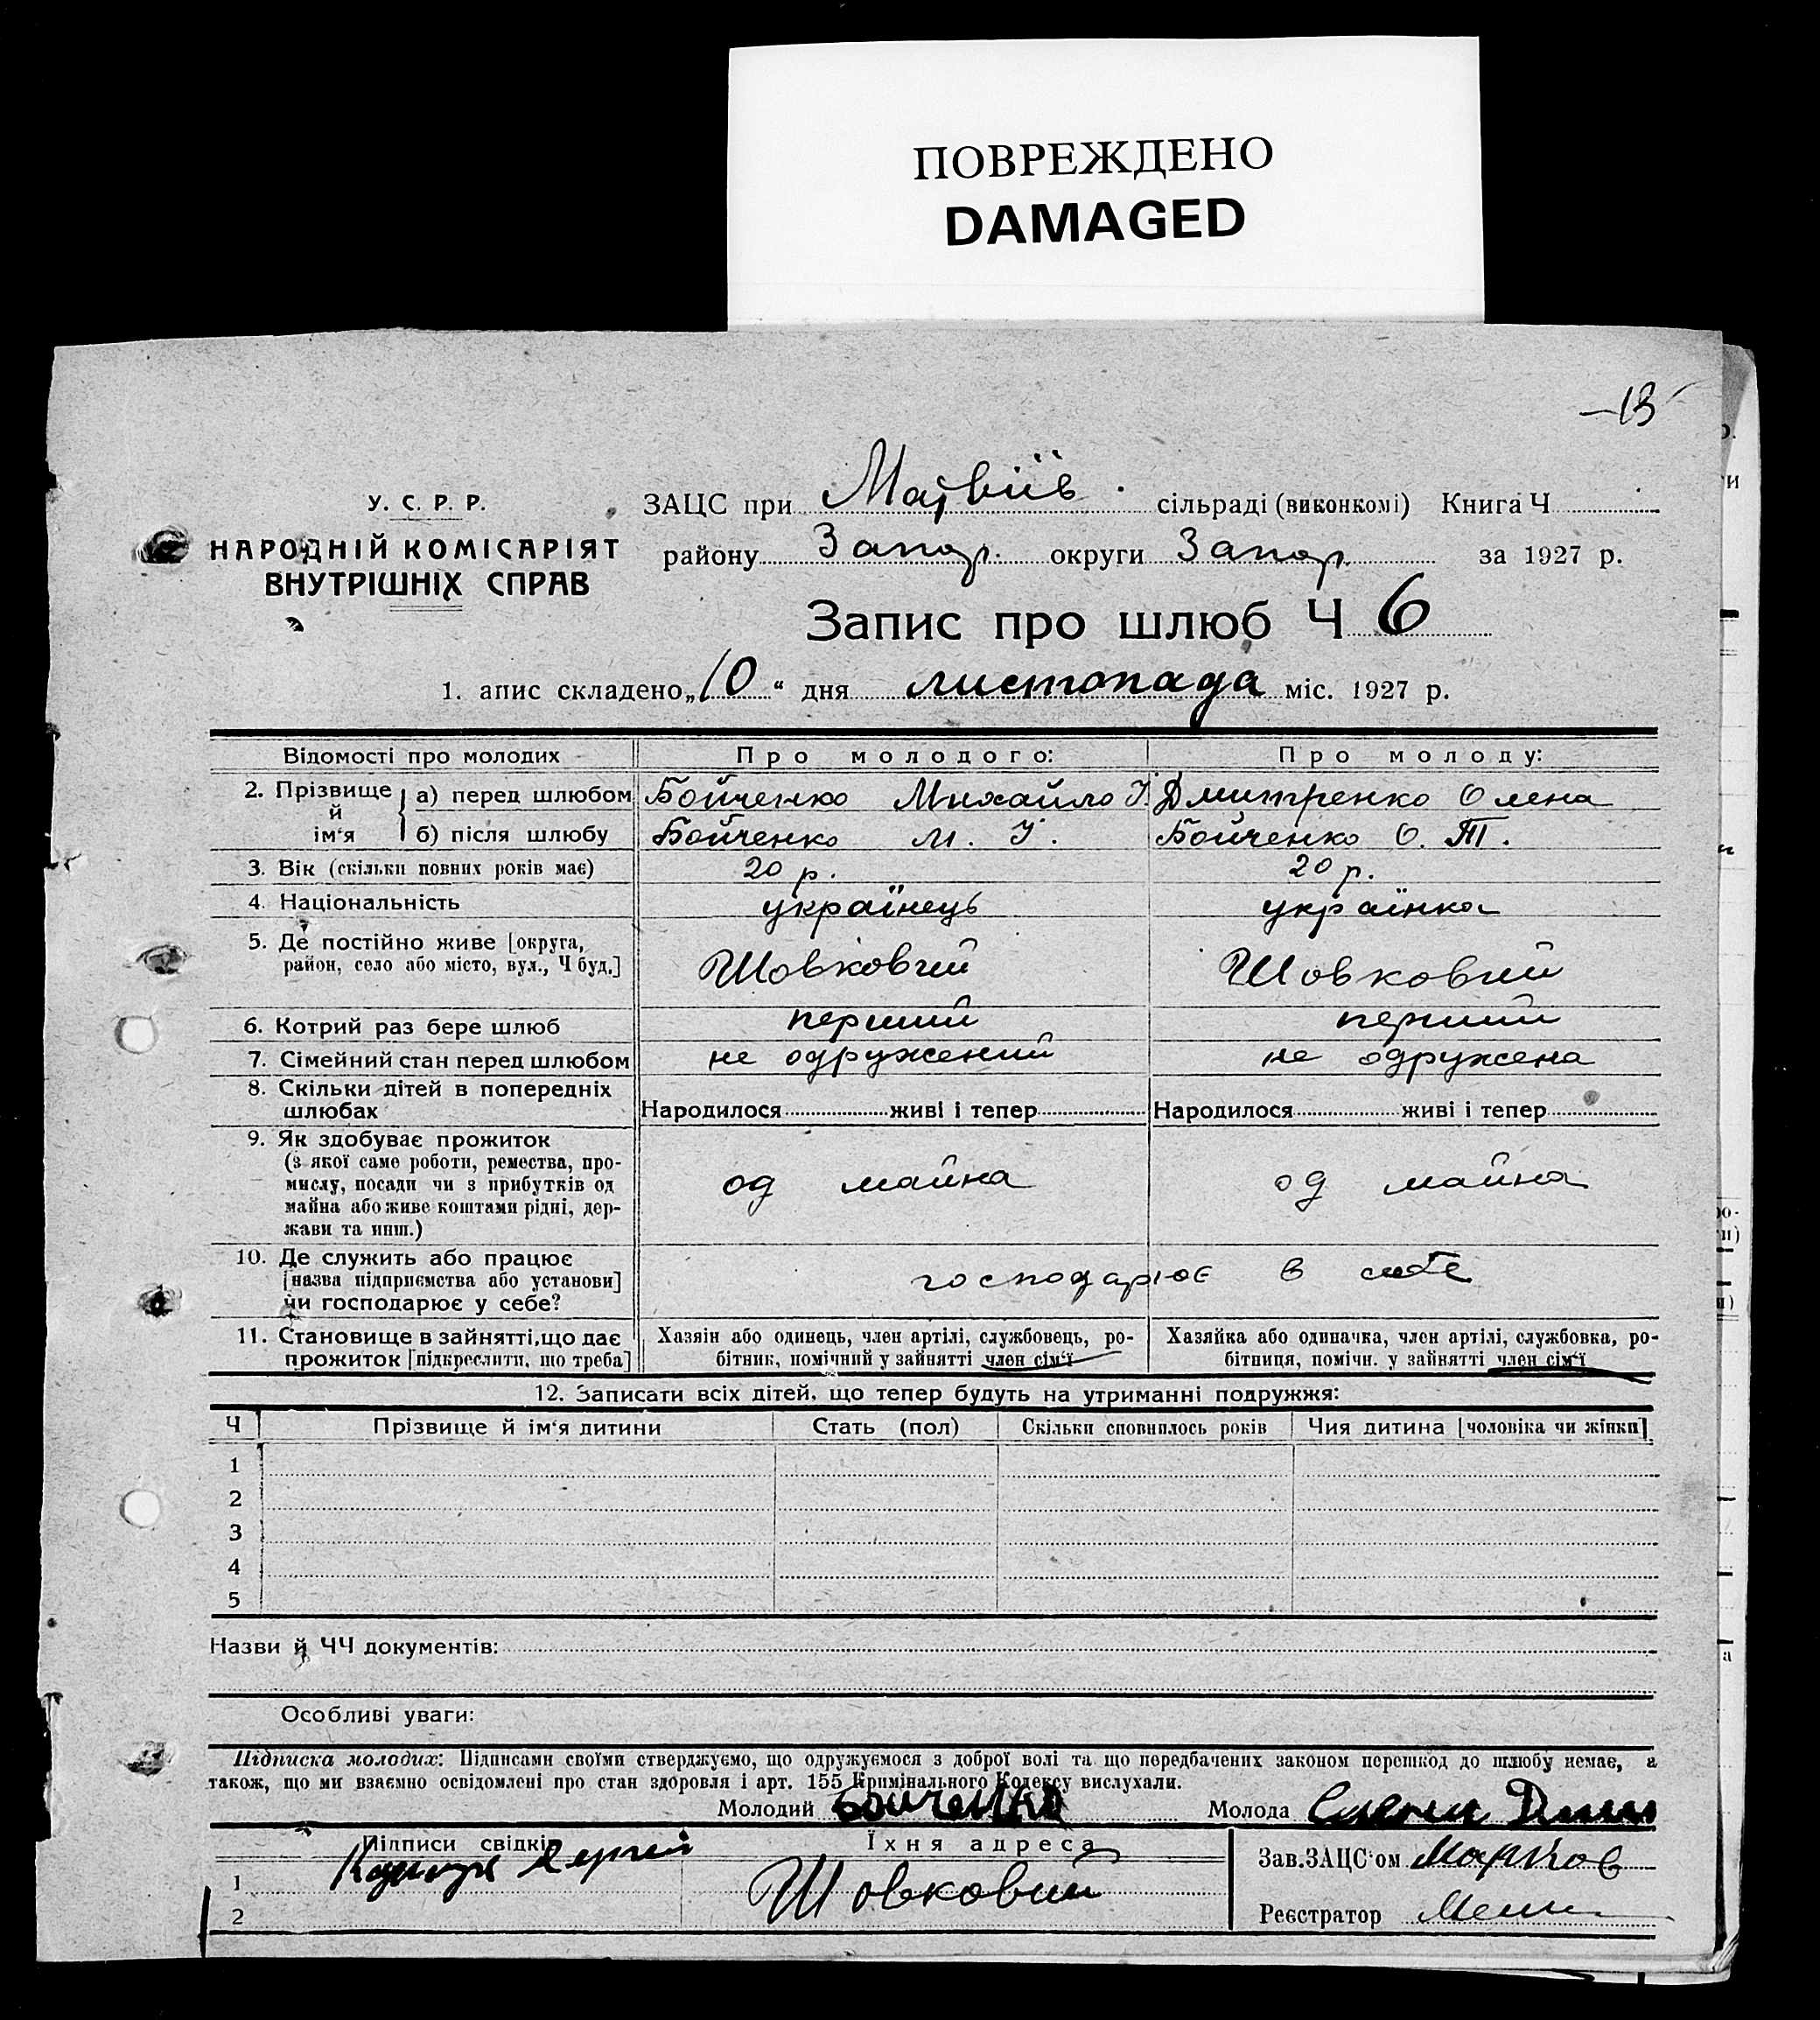 ПОВРЕЖДЕНО
DAMAGED
У. С. Р. Р.
НАРОДНІЙ КОМІСАРІЯТ
ВНУТРІШНІХ СПРАВ
ЗАЦС при Матвіїв. сільраді (виконкомі) Книга Ч
району Запор. округи Запор. за 1927 р.
Запис про шлюб Ч 6
1. апис складено „10“ дня листопада міс. 1927 р.
Відомості про молодих Про молодого: Про молоду:
2. Прізвище й ім‘я
а) перед шлюбом Бойченко Михайло І. Дмитренко Олена
б) після шлюбу Бойченко М. І. Бойченко О. Т.
3. Вік (скільки повних років має) 20 р. 20 р.
4. Національність українець українка
5. Де постійно живе [округа,
район, село або місто, вул., Ч буд.] Шовковий Шовковий
6. Котрий раз бере шлюб перший перший
7. Сімейний стан перед шлюбом не одружений не одружена
8. Скільки дітей в попередніх
шлюбах Народилося живі і тепер Народилося живі і тепер
9. Як здобуває прожиток
(з якої саме роботи, ремества, про-
мислу, посади чи з прибутків од од майна од майна
майна або живе коштами рідні, дер-
жави та инш.)
10. Де служить або працює
[назва підприємства або установи] господарює в себе
чи господарює у себе?
11. Становище в зайнятті, що дає Хазяін або одинець, член артілі, службовець, ро- Хазяйка або одиначка, член артілі, службовка, ро-
прожиток [підкреслити, що треба] бітник, помічний у зайнятті член сім‘ї бітниця, помічн. у зайнятті член сім‘ї
12. Записати всіх дітей, що тепер будуть на утриманні подружжя:
Ч Прізвище й ім‘я дитини Стать (пол) Скільки сповнилось років Чия дитина [чоловіка чи жінки]
1
2
3
4
5
Назви й ЧЧ документів:
Особливі уваги:
Підписка молодих: Підписами своїми стверджуємо, що одружуємося з доброї волі та що передбачених законом перешкод до шлюбу немає, а
також, що ми взаємно освідомлені про стан здоровля і арт. 155 Кримінального Кодексу вислухали.
Молодий Бойченко Молода
Підписи свідків Їхня адреса Зав.ЗАЦС‘ом
1 Шовковий
2 Реєстратор